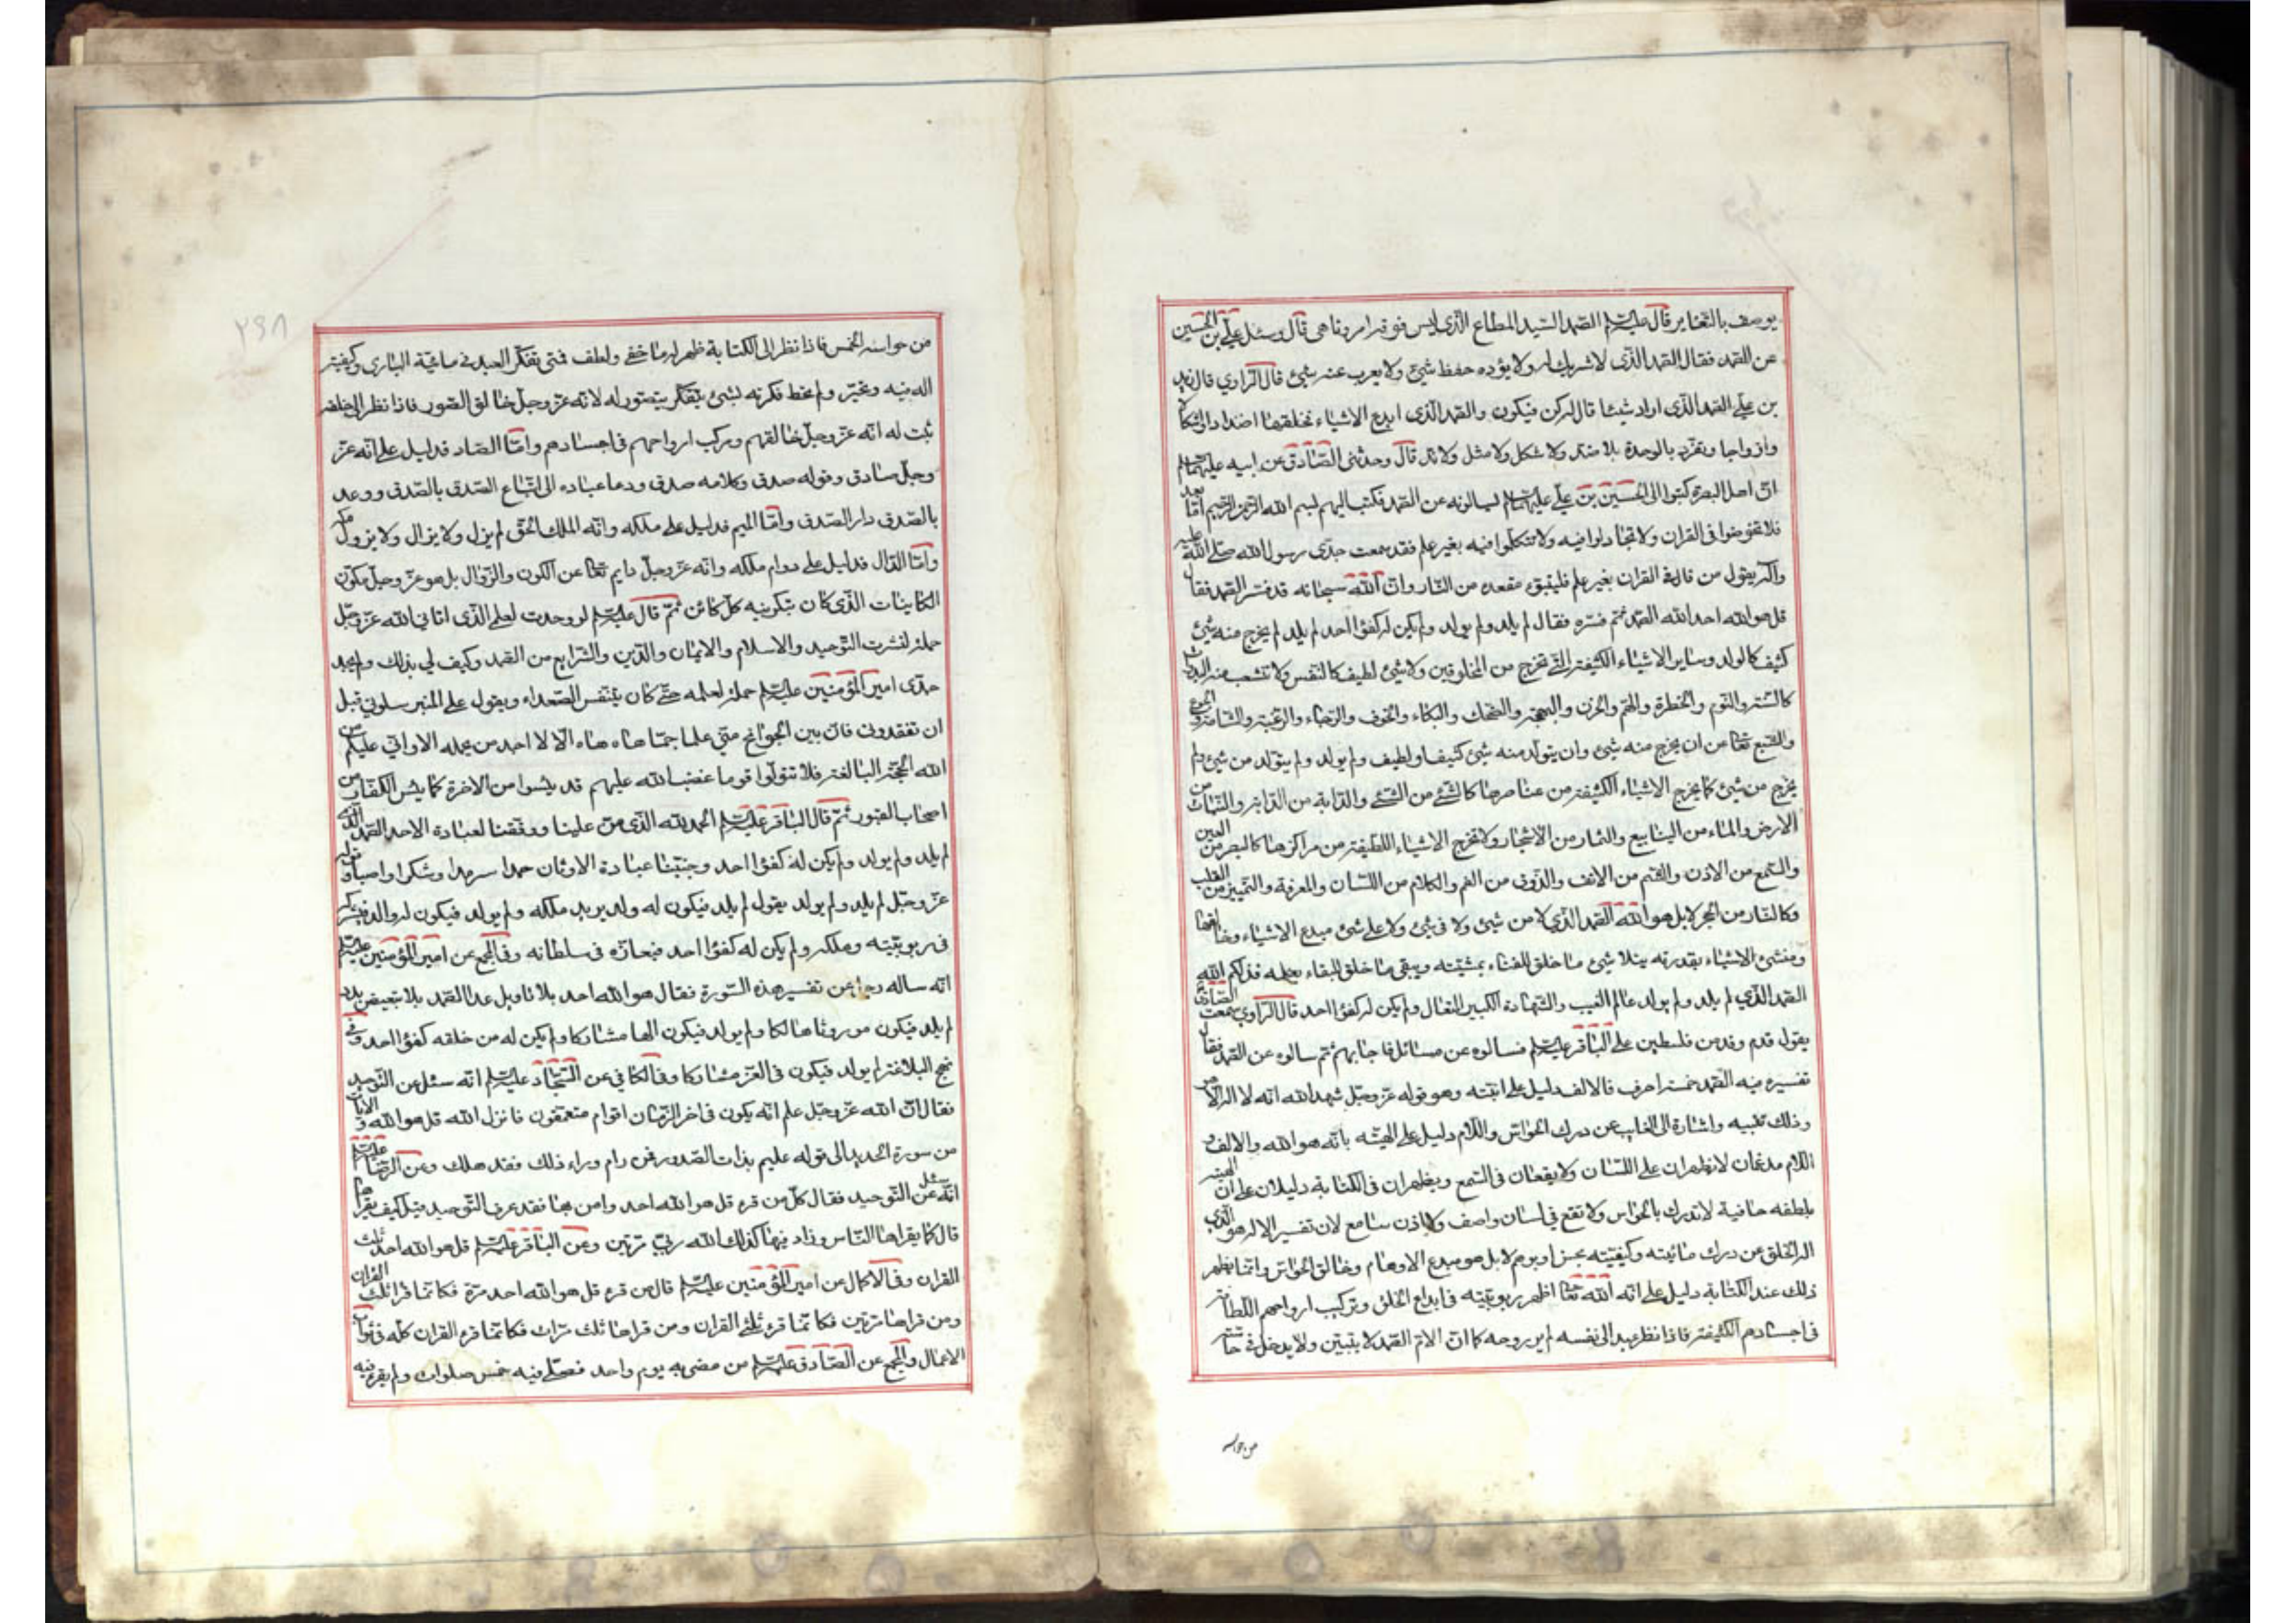 يوصف بالتغاير قال عليه السلم الصمد السيد المطاع الذي ليس فوقه امر وناهي قال وسئل علي بن الحسين
عن الصمد فقال الصمد الذي لا شريك له ولا يؤده حفظ شيئ ولا يعزب عنه شيئ قال الراوي قال زيد
بن علي الصمد الذي اذا اراد شيئا قال له كن فيكون والصمد الذي ابدع الاشياء فخلقها اضدادا واشكالا
وازواجا وتفرد بالوحدة بلا ضد ولا شكل ولا مثل ولا ند قال وحدثني الصادق عن ابيه عليهما السلم
ان اهل البصرة كتبوا الى الحسين بن علي عليهما السلم يسالونه عن الصمد فكتب اليهم بسم الله الرحمن الرحيم اما بعد
فلا تخوضوا في القران ولا تجادلوا فيه ولا تتكلموا فيه بغير علم فقد سمعت جدي رسول الله صلى الله عليه
واله يقول من قال في القران بغير علم فليتبوء مقعده من النار وان الله سبحانه قد فسر الصمد فقال
قل هو الله احد الله الصمد ثم فسره فقال لم يلد ولم يولد ولم يكن له كفؤا احد لم يلد لم يخرج منه شيئ
كثيف كالولد وساير الاشياء الكثيفة التي تخرج من المخلوقين ولا شيئ لطيف كالنفس ولا تتشعب منه البدوات
كالسنة والنوم والخطرة والهم والحزن والبهجة والضحك والبكاء والخوف والرجاء والرغبة والشامة والجوع
والشبع تعالى من ان يخرج منه شيئ وان يتولد منه شيئ كثيف او لطيف ولم يولد ولم يتولد من شيئ ولم
يخرج من شيئ كما يخرج الاشياء الكثيفة من عناصرها كالشئ من الشئ والدابة من الدابة والنبات من
الارض والماء من الينابيع والثمار من الاشجار ولا كما تخرج الاشياء اللطيفة من مراكزها كالبصر من العين
والسمع من الاذن والشم من الانف والذوق من الفم والكلام من اللسان والمعرفة والتمييز من القلب
وكالنار من الحجر لا بل هو الله الصمد الذي لا من شيئ ولا في شيئ ولا على شيئ مبدع الاشياء وخالقها
ومنشئ الاشياء بقدرته يتلاشى ما خلق للفناء بمشيته ويبقى ما خلق للبقاء بعلمه فذلكم الله
الصمد الذي لم يلد ولم يولد عالم الغيب والشهادة الكبير المتعال ولم يكن له كفؤا احد قال الراوي سمعت الصادق
يقول قدم وفد من فلسطين على الباقر عليه السلم فسالوه عن مسائل فاجابهم ثم سالوه عن الصمد فقال
تفسيره فيه الصمد خمسة احرف فالالف دليل على انيته وهو قوله عز وجل شهد الله انه لا اله الا هو
وذلك تنبيه واشارة الى الغايب عن درك الحواس واللام دليل على الهيته بانه هو الله والالف و
اللام مدغمان لا يظهران على اللسان ولا يقعان في السمع ويظهران في الكتابة دليلان على ان الهيته
بلطفه خافية لا تدرك بالحواس ولا تقع في لسان واصف ولا اذن سامع لان تفسير الاله هو الذي
اله الخلق عن درك مائيته وكيفيته بحس او بوهم لا بل هو مبدع الاوهام وخالق الحواس وانما يظهر
ذلك عند الكتابة دليل على انه الله تعالى اظهر ربوبيته في ابداع الخلق وتركيب ارواحهم اللطيفة
في اجسادهم الكثيفة فاذا نظر عبد الى نفسه لم ير روحه كما ان لام الصمد لا يتبين ولا يدخل في حاسة
من حواسه
من حواسه الخمس فاذا نظر الى الكتابة ظهر له ما خفي ولطف فمتى تفكر العبد في مائية الباري وكيفيته
اله فيه وتحير ولم تحط فكرته بشئ يتفكر يتصور له لانه عز وجل خالق الصور فاذا نظر الى خلقه
ثبت له انه عز وجل خالقهم ومركب ارواحهم في اجسادهم واما الصاد فدليل على انه عز
وجل صادق وقوله صدق وكلامه صدق ودعا عباده الى اتباع الصدق بالصدق ووعد
بالصدق دار الصدق واما الميم فدليل على ملكه وانه الملك الحق لم يزل ولا يزال ولا يزول ملكه
واما الدال فدليل على دوام ملكه وانه عز وجل دايم تعالى عن الكون والزوال بل هو عز وجل مكون
الكاينات الذي كان بتكوينه كل كائن ثم قال عليه السلم لو وجدت لعلمي الذي اتاني الله عز وجل
حملة لنشرت التوحيد والاسلام والايمان والدين والشرايع من الصمد وكيف لي بذلك ولم يجد
جدي امير المؤمنين عليه السلم حملة لعلمه حتى كان يتنفس الصعداء ويقول على المنبر سلوني قبل
ان تفقدوني فان بين الجوانح مني علما جما هاه هاه الا لا اجد من يحمله الا واني عليكم من
الله الحجة البالغة فلا تتولوا قوما غضب الله عليهم قد يئسوا من الاخرة كما يئس الكفار من
اصحاب القبور ثم قال الباقر عليه السلم الحمد لله الذي من علينا ووفقنا لعبادة الاحد الصمد الذي
لم يلد ولم يولد ولم يكن له كفؤا احد وجنبنا عبادة الاوثان حمدا سرمدا وشكرا واصبا وقوله
عز وجل لم يلد ولم يولد يقول لم يلد فيكون له ولد يرث ملكه ولم يولد فيكون له والد يشركه
في ربوبيته وملكه ولم يكن له كفؤا احد فيعازه في سلطانه وفي المجمع عن امير المؤمنين عليه السلم
انه ساله رجل عن تفسير هذه السورة فقال هو الله احد بلا تاويل عدد الصمد بلا تبعيض بدد
لم يلد فيكون موروثا هالكا ولم يولد فيكون الها مشاركا ولم يكن له من خلقه كفؤا احد وفي
نهج البلاغة لم يولد فيكون في العز مشاركا وفي الكافي عن السجاد عليه السلم انه سئل عن التوحيد
فقال ان الله عز وجل علم انه يكون في اخر الزمان اقوام متعمقون فانزل الله قل هو الله و الايات
من سورة الحديد الى قوله عليم بذات الصدور فمن رام وراء ذلك فقد هلك وعن الرضا عليه السلم
انه سئل عن التوحيد فقال كل من قرء قل هو الله احد وامن بها فقد عرف التوحيد قيل كيف يقراها
قال كما يقراها الناس وزاد فيها كذلك الله ربي مرتين وعن الباقر عليه السلم قل هو الله احد ثلث
القران وفي الاكمال عن امير المؤمنين عليه السلم قال من قرء قل هو الله احد مرة فكانما قرا ثلث القران
ومن قراها مرتين فكانما قرء ثلثي القران ومن قراها ثلث مرات فكانما قرء القران كله في ثواب
الاعمال والمجمع عن الصادق عليه السلم من مضى به يوم واحد فصلى فيه خمس صلوات ولم يقرء فيه